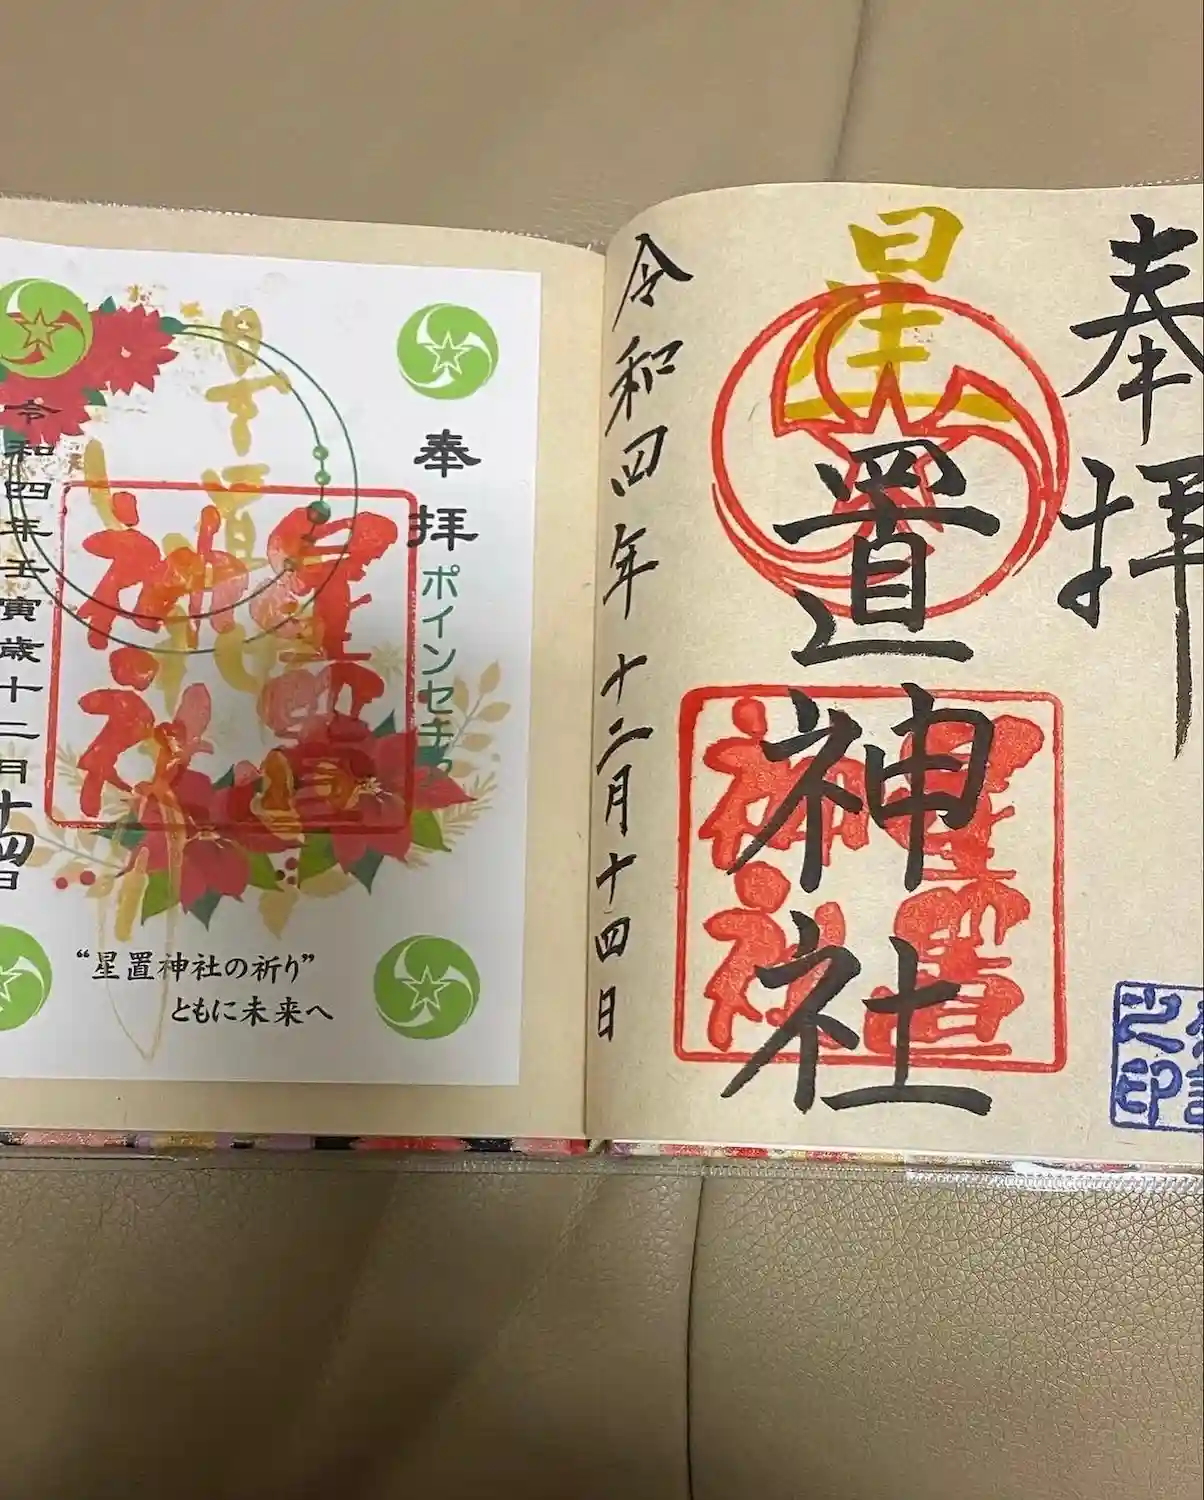 奉拝
星置神社
星置神社
令和四年十二月十四日
之印
奉拝
ポインセチア
星置神社
星置神社
令和四年壬寅歳十二月十四日
“星置神社の祈り”
ともに未来へ